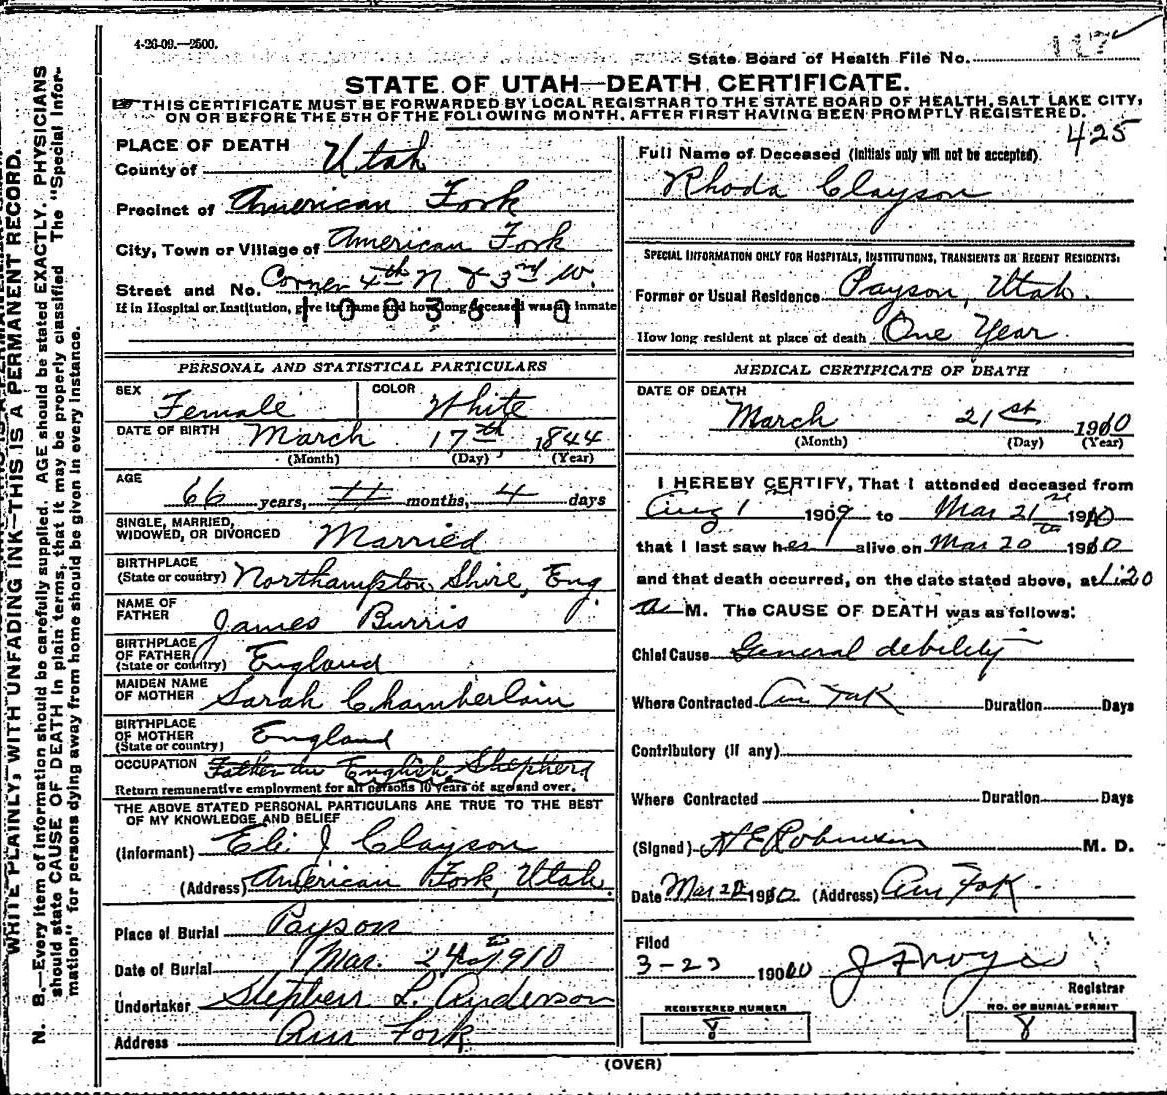 4-26-09.—2500.
117
State Board of Health File No.
STATE OF UTAH—DEATH CERTIFICATE.
THIS CERTIFICATE MUST BE FORWARDED BY LOCAL REGISTRAR TO THE STATE BOARD OF HEALTH, SALT LAKE CITY,
ON OR BEFORE THE 5TH OF THE FOLLOWING MONTH, AFTER FIRST HAVING BEEN PROMPTLY REGISTERED.
425
WRITE PLAINLY, WITH UNFADING INK—THIS IS A PERMANENT RECORD.
N. B.—Every item of information should be carefully supplied. AGE should be stated EXACTLY. PHYSICIANS
should state CAUSE OF DEATH in plain terms, that it may be properly classified. The "Special Infor-
mation" for persons dying away from home should be given in every instance.
PLACE OF DEATH
County of Utah
Precinct of American Fork
City, Town or Village of American Fork
Street and No. Corner 4th N. & 3rd W.
If in Hospital or Institution, give its name and how long deceased was an inmate
1003610
PERSONAL AND STATISTICAL PARTICULARS
SEX Female COLOR White
DATE OF BIRTH March 17th 1844
(Month) (Day) (Year)
AGE
66 years, months, 4 days
SINGLE, MARRIED,
WIDOWED, OR DIVORCED Married
BIRTHPLACE
(State or country) Northampton Shire, Eng
NAME OF
FATHER James Burris
BIRTHPLACE
OF FATHER
(State or country) England
MAIDEN NAME
OF MOTHER Sarah Chamberlain
BIRTHPLACE
OF MOTHER
(State or country) England
OCCUPATION Father an English Shepherd
Return remunerative employment for all persons 10 years of age and over.
THE ABOVE STATED PERSONAL PARTICULARS ARE TRUE TO THE BEST
OF MY KNOWLEDGE AND BELIEF
(Informant) Eli J Clayson
(Address) American Fork, Utah.
Place of Burial Payson
Date of Burial Mar. 24th 1910
Undertaker Stephen L. Anderson
Address Am Fork
Full Name of Deceased (Initials only will not be accepted)
Rhoda Clayson
SPECIAL INFORMATION ONLY FOR HOSPITALS, INSTITUTIONS, TRANSIENTS OR RECENT RESIDENTS:
Former or Usual Residence Payson, Utah.
How long resident at place of death One Year
MEDICAL CERTIFICATE OF DEATH
DATE OF DEATH
March 21st 1910
(Month) (Day) (Year)
I HEREBY CERTIFY, That I attended deceased from
Aug 1st 1909 to Mar 21st 1910
that I last saw her alive on Mar 20th 1910
and that death occurred, on the date stated above, at 1:20
a M. The CAUSE OF DEATH was as follows:
Chief Cause General debility
Where Contracted Am Fork Duration Days
Contributory (if any)
Where Contracted Duration Days
(Signed) H E Robinson M. D.
Date Mar 22 1910 (Address) Am Fork.
Filed
3-23 1910
Registrar
REGISTERED NUMBER
8
NO. OF BURIAL PERMIT
8
(OVER)